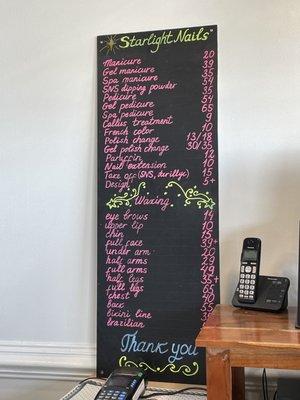 Starlight Nails
Manicure 20
Gel manicure 39
Spa manicure 35
SNS dipping powder 54
Pedicure 35
Gel pedicure 54
Spa pedicure 65
Callus treatment 9
French color 10
Polish change 13/18
Gel polish change 30/35
Paraffin 12
Nail extension 10
Take off (SNS, acrylic) 15
Design 5+
Waxing
eye brows 14
upper lip 10
chin 15
full face 39+
under arm 20
half arms 29
full arms 49
half legs 35+
full legs 65
chest 40
back
bikini line
brazilian
Thank you